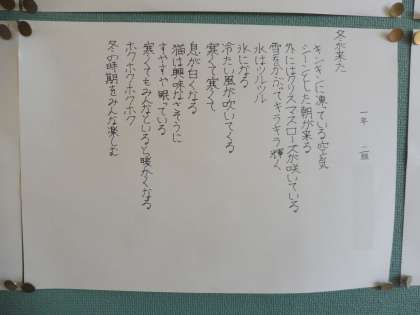 冬が来た
一年　二組
キンキンに凍ている空気
シーンとした朝が来る
外にはクリスマスローズが咲いている
雪をかぶってキラキラ輝く
水はツルツル
氷になる
冷たい風が吹いてくる
寒くて寒くて
息が白くなる
猫は興味なさそうに
すやすや眠っている
寒くてもみんなでいると暖かくなる
ホクホクホクホク
冬の時期をみんな楽しむ